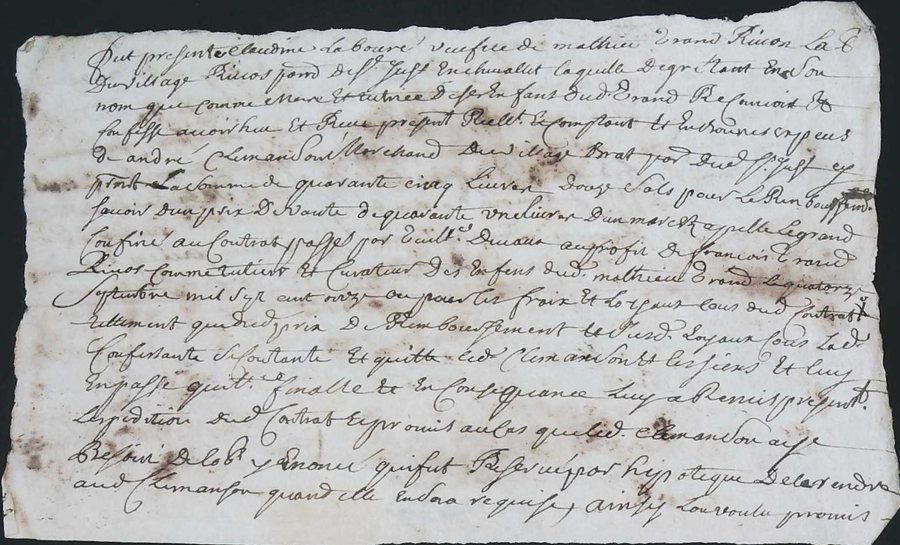 Fut presente Claudine Labouré veufve de mathieu Trand Rivon La
Du village Rivos parr. de St. Just En chevallet laquelle degré tant En son
nom que comme Mere Et tutrice De ses Enfant dud. Trand Reconnoit Et
Confesse avoir heu Et Receu present. Réell. Et Comptant
de andré Clemanson Marchand Du village Brat par. Dud. St. Just
La Somme de quarante cinq Livres douze Sols pour Le Remboursem.
savoir dun prix De Vante de quarante une livres dun marck apellé Legrand
Confiné au Contrat passé par au profit de francois Trand
Rivos Comme tutteur Et Curateur des Enfens dud. mathieu Trand Le quatorze
Septembre mil Sept cent onze ou pour les fraix Et Loyaux Cous dud. Contrat
tellement que dud. prix De Remboursement Et Loyaux Cous Lad.
Confessante Se Contante Et quitte led. Clemanson Et les siens Et luy
En passe quitt. finalle Et En Consequance Luy a Remis present.
Lexpedition dud. Contrat Et promis au Cas que led. Clemanson aye
Besoin De lob. y Enoncé qui fut Reservé par hipoteque De la rendre
aud. Clemanson quand elle En sera requise, ainsy Lont voulu promis